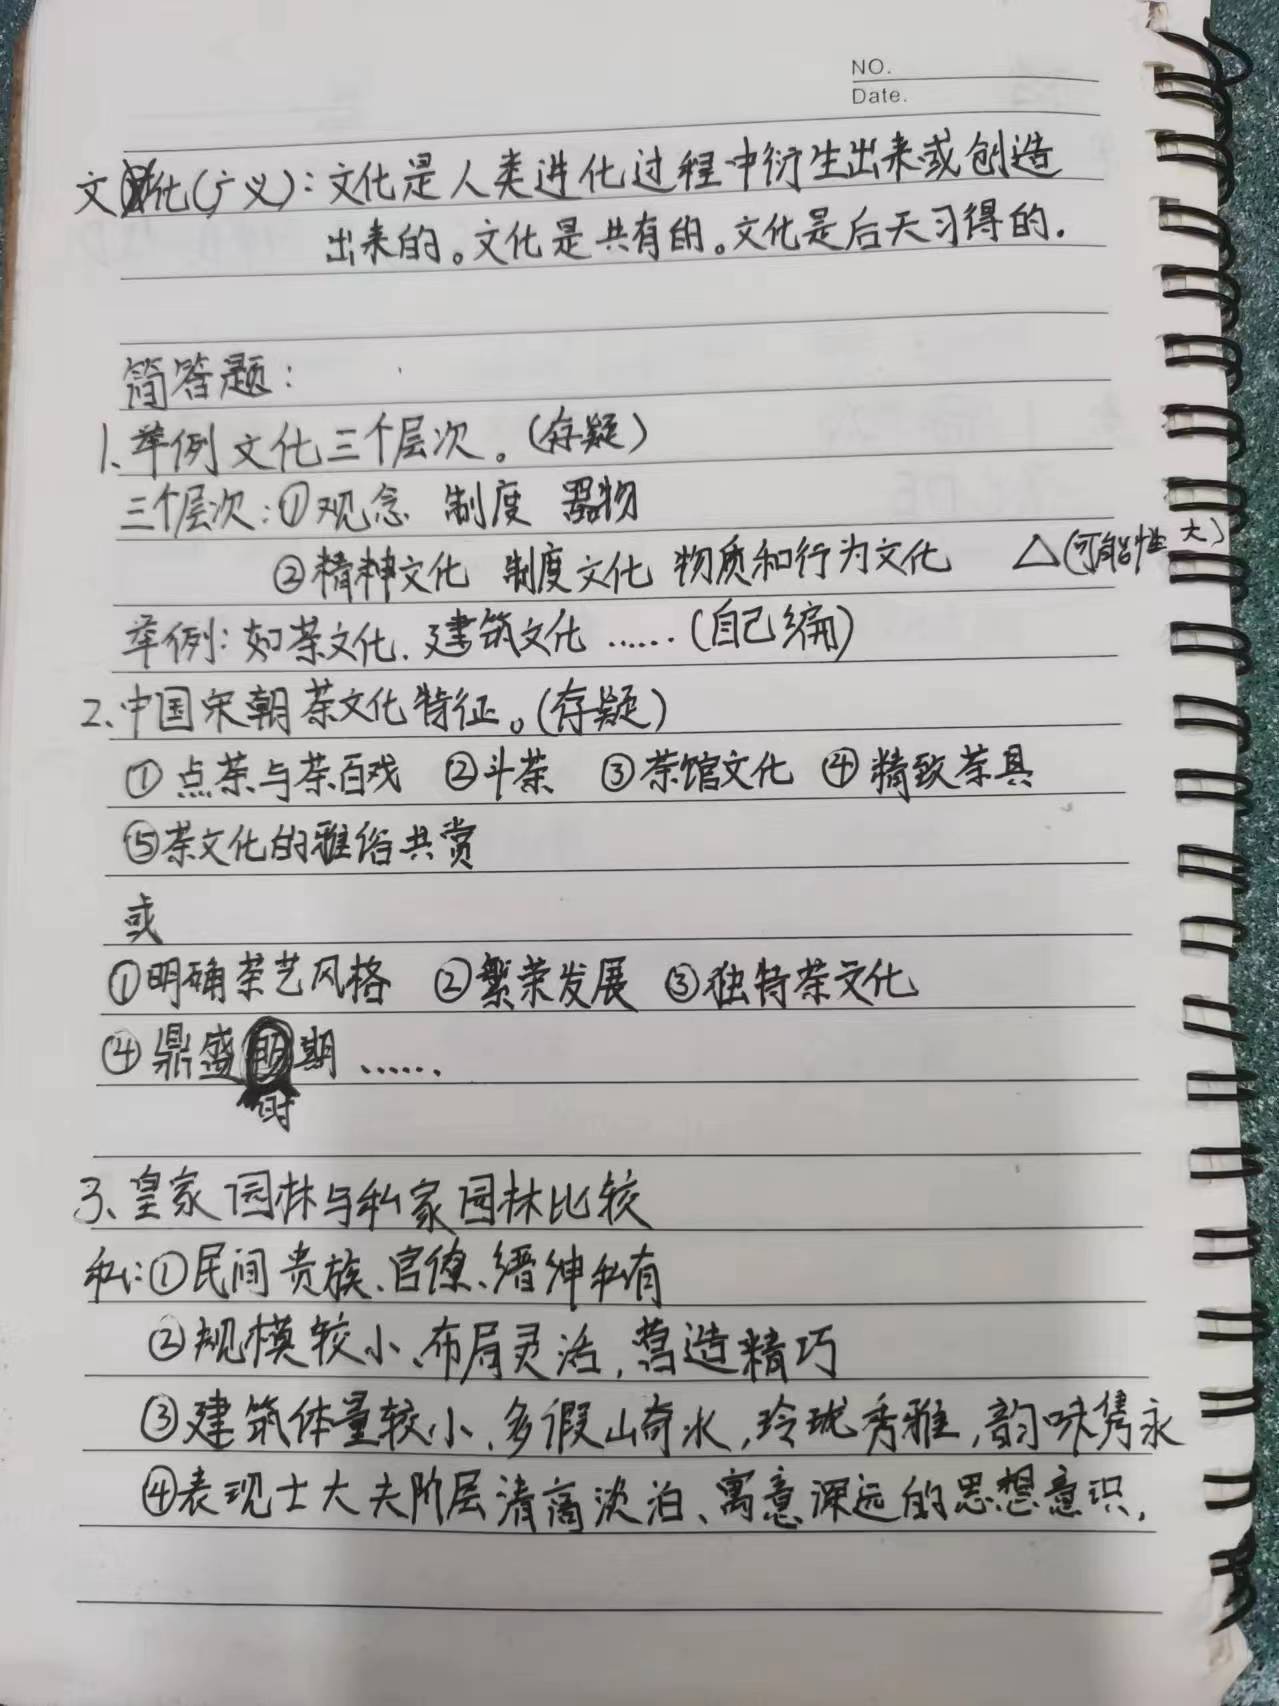 NO.
Date.
文化(广义)：文化是人类进化过程中衍生出来或创造
出来的。文化是共有的。文化是后天习得的.
简答题：
1、举例文化三个层次。(存疑)
三个层次：①观念 制度 器物
②精神文化 制度文化 物质和行为文化 △(可能性大)
举例：如茶文化、建筑文化……(自己编)
2、中国宋朝茶文化特征。(存疑)
①点茶与茶百戏 ②斗茶 ③茶馆文化 ④精致茶具
⑤茶文化的雅俗共赏
或
①明确茶艺风格 ②繁荣发展 ③独特茶文化
④鼎盛期……
时
3、皇家园林与私家园林比较
私：①民间贵族、官僚、缙绅私有
②规模较小、布局灵活，营造精巧
③建筑体量较小、多假山奇水，玲珑秀雅，韵味隽永
④表现士大夫阶层清高淡泊、寓意深远的思想意识.